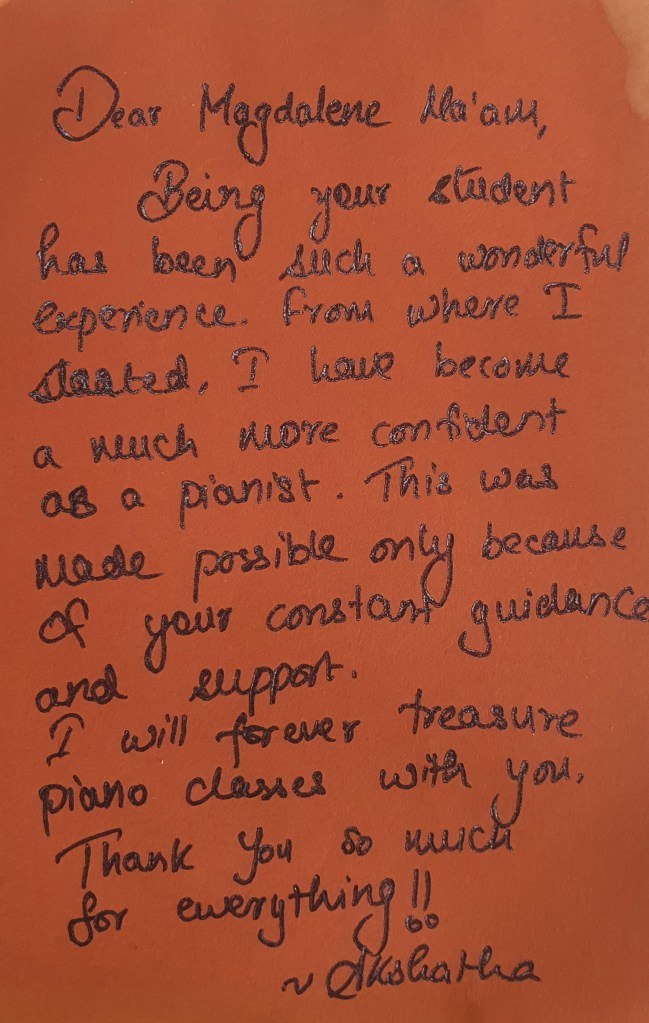 Dear Magdalene Ma'am,
Being your student
has been such a wonderful
experience. From where I
started, I have become
a much more confident
as a pianist. This was
made possible only because
of your constant guidance
and support.
I will forever treasure
piano classes with you.
Thank you so much
for everything!!
~ Akshatha